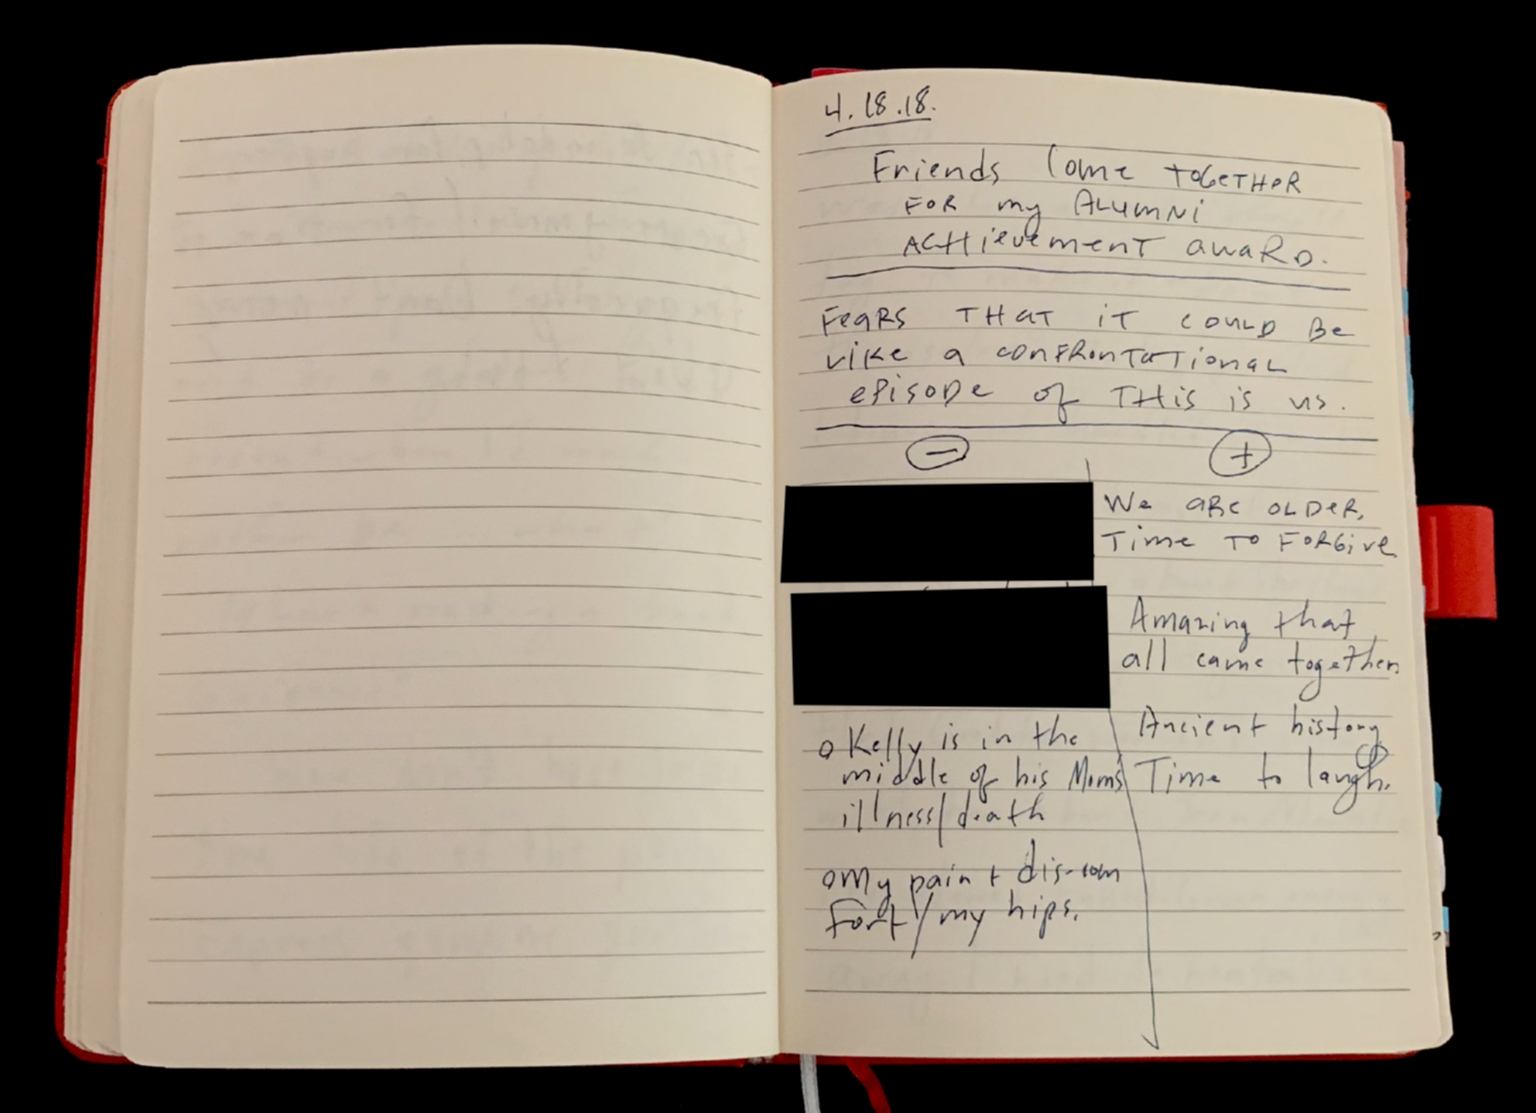 4.18.18.
Friends Come TOGETHER
FOR my ALUMNi
ACHievemenT awaRD.
FeaRS THAT iT COULD Be
LiKe a CONFRONTaTionaL
ePiSODe of THis is us.
− +
We aRe OLDeR,
Time TO FORGive
Amazing that
all came together.
o Kelly is in the
middle of his Moms
illness/death
Ancient history
Time to laugh.
o My pain + dis-com
fort/my hips.